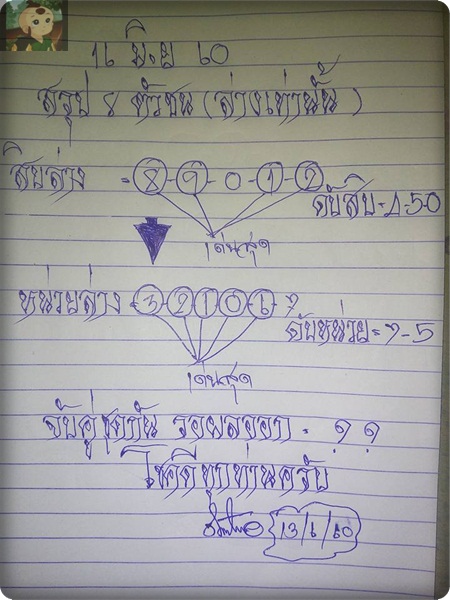 16 มิ.ย 60
สรุป 8 ตัวชน (ล่างเท่านั้น)
สิบล่าง = 8-9-0-1-2
ดับสิบ=4-5-0
เด่นสุด
หน่วยล่าง = 3-2-1-0-6-7
ดับหน่วย=7-5
เด่นสุด
จับคู่เอากัน รอผลออก = ? ?
โชคดีทุกท่านครับ
13/6/60